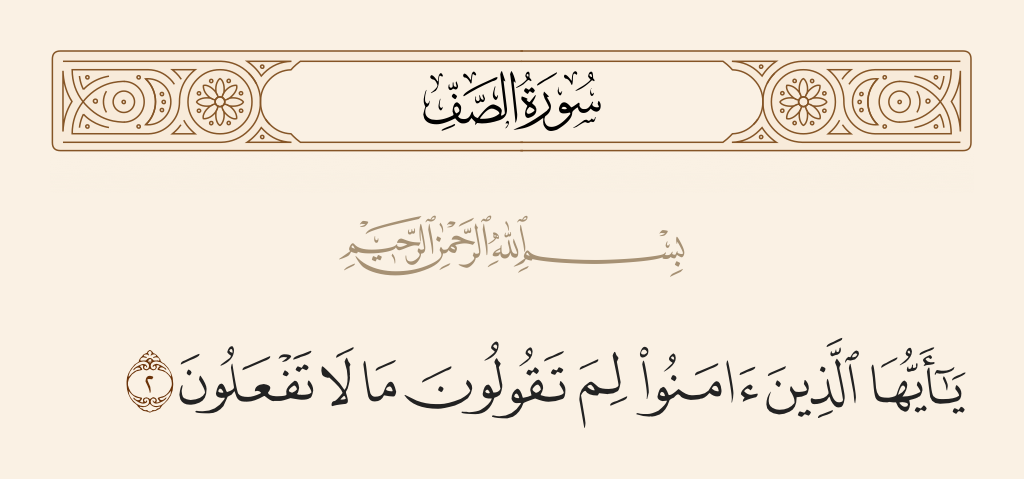 سُورَةُ الصَّفِّ
بِسْمِ ٱللَّهِ ٱلرَّحْمَٰنِ ٱلرَّحِيمِ
يَـٰٓأَيُّهَا ٱلَّذِينَ ءَامَنُوا۟ لِمَ تَقُولُونَ مَا لَا تَفْعَلُونَ ٢